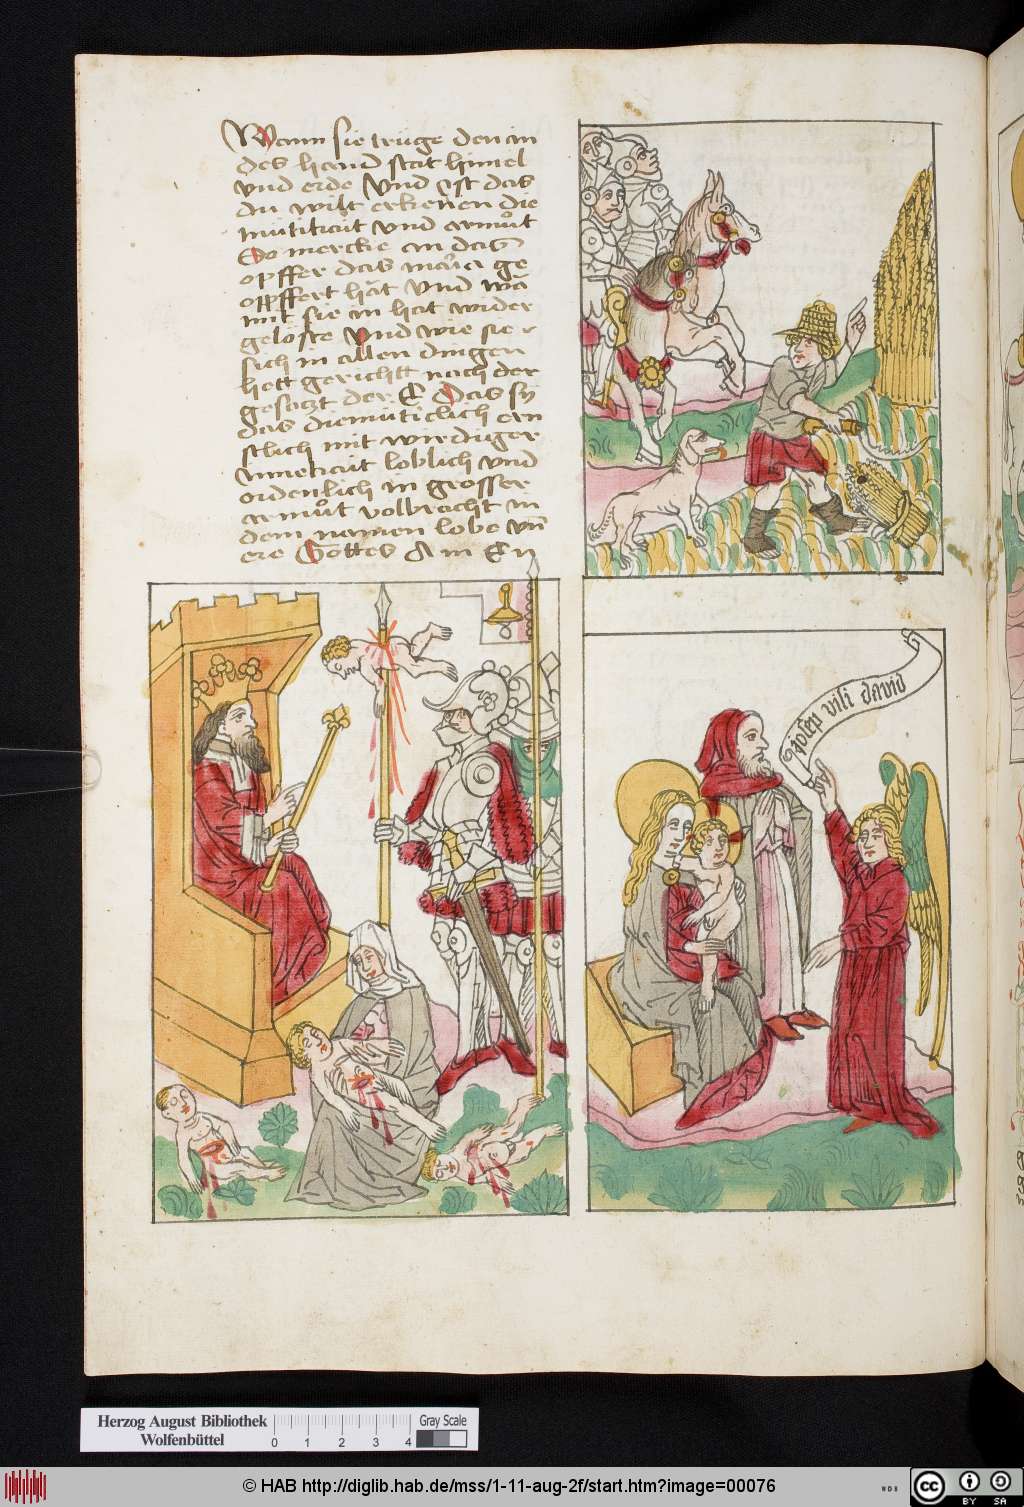 Wann sie truge den in
des hand stat himel
vnd erde Vnd yst das
du wilt erkenen die
mütikait vnd armůt
So mercke an das
opffer das maria ge
opffert hăt vnd wa
mit sie in hat wider
geloste Vnd wie sie
sich in allen dingen
hett gerichtt nach der
gesatzt der E Das sy
das diemüticlich ern
stlich mit wirdiger
vnnekait loblich vnd
ordenlich in grosser
armůt volbracht in
dem namen lobe vn̄
ere Gottes Am En
iosep vili david
Herzog August Bibliothek
Wolfenbüttel
0 1 2 3 4
Gray Scale
© HAB http://diglib.hab.de/mss/1-11-aug-2f/start.htm?image=00076
WDB
cc BY SA